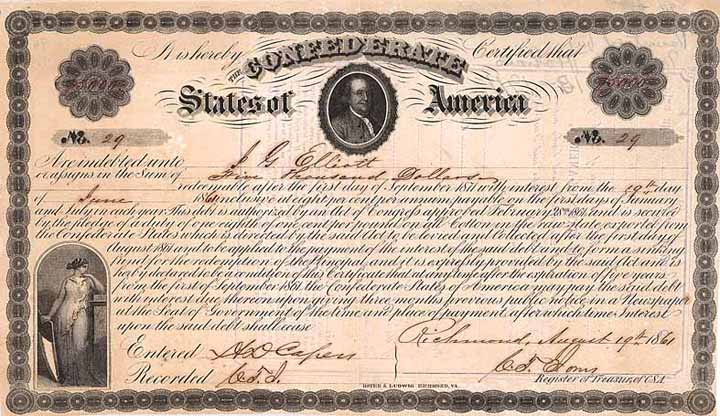 It is hereby Certified that
THE CONFEDERATE
States of America
No. 29 No. 29
Are indebted unto J G Elliott
or assigns in the Sum of Five Thousand Dollars
redeemable after the first day of September 1871 with interest from the 29th day
of June 1861 inclusive at eight per cent per annum payable on the first days of January
and July in each year. This debt is authorized by an Act of Congress approved February 28th 1861 and is secured
by the pledge of a duty of one eighth of one cent per pound on all Cotton in the raw state exported from
the Confederate States which is directed by the said Act to be levied and collected after the first day of
August 1861 and to be applied to the payment of the interest of the said debt and to form a sinking
fund for the redemption of the principal, and it is expressly provided by the said Act and is
hereby declared to be a condition of this Certificate that at any time after the expiration of five years
from the first of September 1861. the Confederate States of America may pay the said debt
with interest due thereon upon giving three months previous public notice in a Newspaper
at the Seat of Government of the time and place of payment, after which time Interest
upon the said debt shall cease
Richmond, August 19th 1861
Entered H D Capers
Recorded
HOYER & LUDWIG RICHMOND, VA.
Register of Treasury of C.S.A.